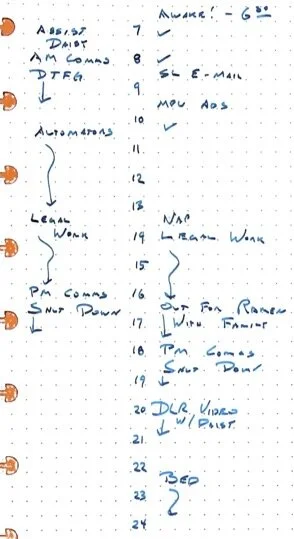 AWAKE! - 6 30
ASSIST
DAISY
7 ✓
AM COMMS
8 ✓
DTFG
SL E-MAIL
9
MPU ADS
10
AUTOMATORS
✓
11
12
13
LEGAL
WORK
NAP
14 LEGAL WORK
15
PM COMMS
16
SHUT DOWN
OUT FOR RAMEN
17 WITH FAMILY
18 PM COMMS
SHUT DOWN
19
20 DLR VIDEO
W/ DAISY
21
22
BED
23
24